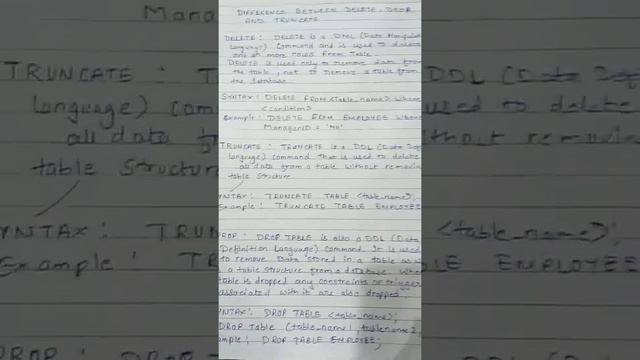 DIFFERENCE BETWEEN DELETE, DROP
AND TRUNCATE
DELETE : DELETE is a DML (Data Manipulat
Language) Command and is used to delete
one or more rows from Table
DELETE is used only to remove data from
the table, not to remove a table from
the database
SYNTAX : DELETE FROM <table_name> Where
<condition>
Example : DELETE FROM EMPLOYEE Where
ManagerID =
TRUNCATE : TRUNCATE is a DDL (Data Def
Language) command that is used to delete
all data from a table without removing
table structure
YNTAX : TRUNCATE TABLE <table_name>;
Example : TRUNCATE TABLE EMPLOYEE
DROP : DROP TABLE is also a DDL (Data
Definition Language) command. It is used
to remove Data stored in a table as
a table structure from a database. When
table is dropped any constraints or trigger
associated with it are also dropped.
YNTAX : DROP TABLE <table_name>;
DROP Table (table_name1, tablename2,
ample : DROP TABLE EMPLOYEE;